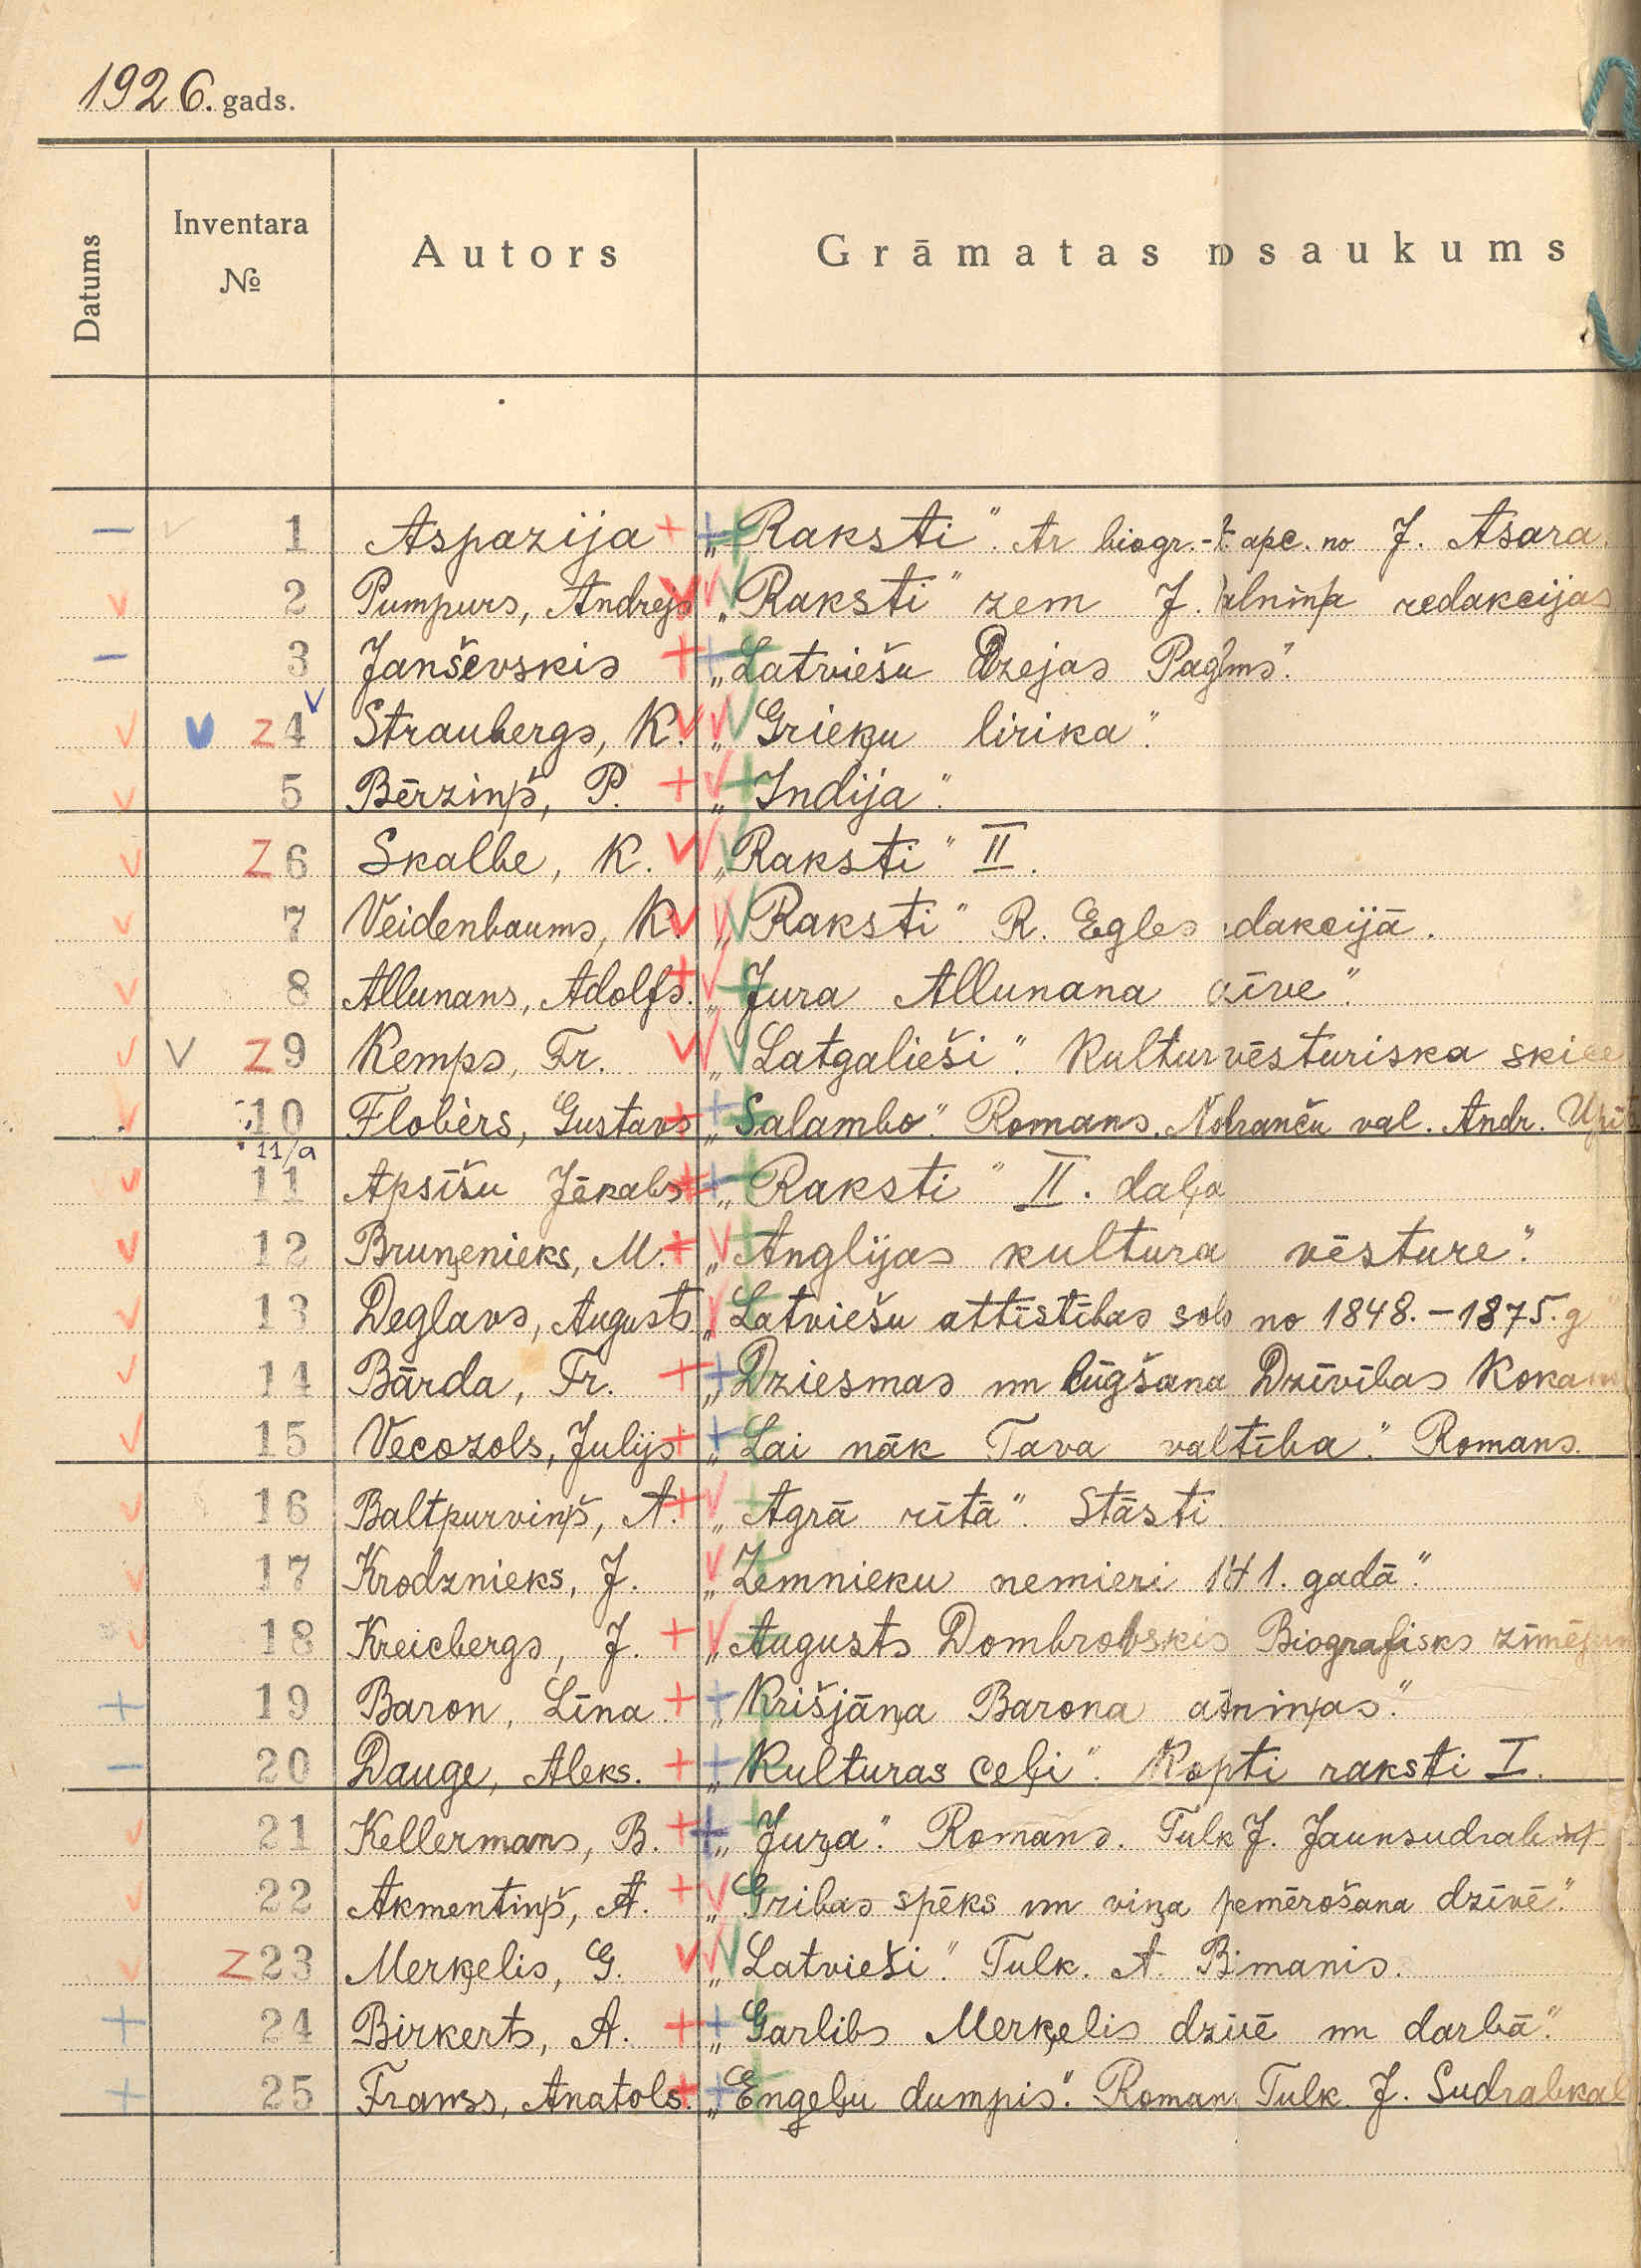 1926. gads.
Datums
Inventara
№
Autors
Grāmatas nosaukums
1 Aspazija „Raksti". Ar biogr.- apc. no J. Asara.
2 Pumpurs, Andrejs „Raksti" zem J. redakcijas
3 Janševskis „Latviešu Dzejas
Z4 Straubergs, K. „Grieķu lirika".
5 Bērziņš, P. „Indija".
Z6 Skalbe, K. „Raksti" II.
7 Veidenbaums, K. „Raksti". R. Egles
8 Allunans, Adolfs. „Jura Allunana
V Z9 Kemps, Fr. „Latgalieši". Kulturvēsturiska
10 Flobèrs, Gustavs „Salambo". Romans. val. Andr.
11/a
11 Apsīšu Jēkabs „Raksti" II. daļa
12 Bruņenieks, M. „Anglijas kultura vēsture".
13 Deglavs, Augusts „Latviešu attīstības no 1848.-1875. g
14 Bārda, Fr. „Dziesmas un lūgšana Dzīvības
15 Vecozols, Julijs „Lai nāk Tava valtība". Romans.
16 Baltpurviņš, A. „Agrā rītā". Stāsti
17 Krodznieks, J. „Zemnieku nemieri gadā".
18 Kreicbergs, J. „Augusts Biografisks
19 Baron, Līna. „Krišjāņa Barona
20 Dauge, Aleks. „Kulturas ceļi". Kopti raksti I.
21 Kellermans, B. „Juŗa". Romans. Tulk J.
22 Akmentiņš, A. „Gribas spēks un viņa dzīvē".
Z23 Merķelis, G. „Latvieši". Tulk. A.
24 Birkerts, A. „Garlibs Merķelis dzīvē un darbā".
25 Franss, Anatols. „Engeļu dumpis". Roman Tulk. J.